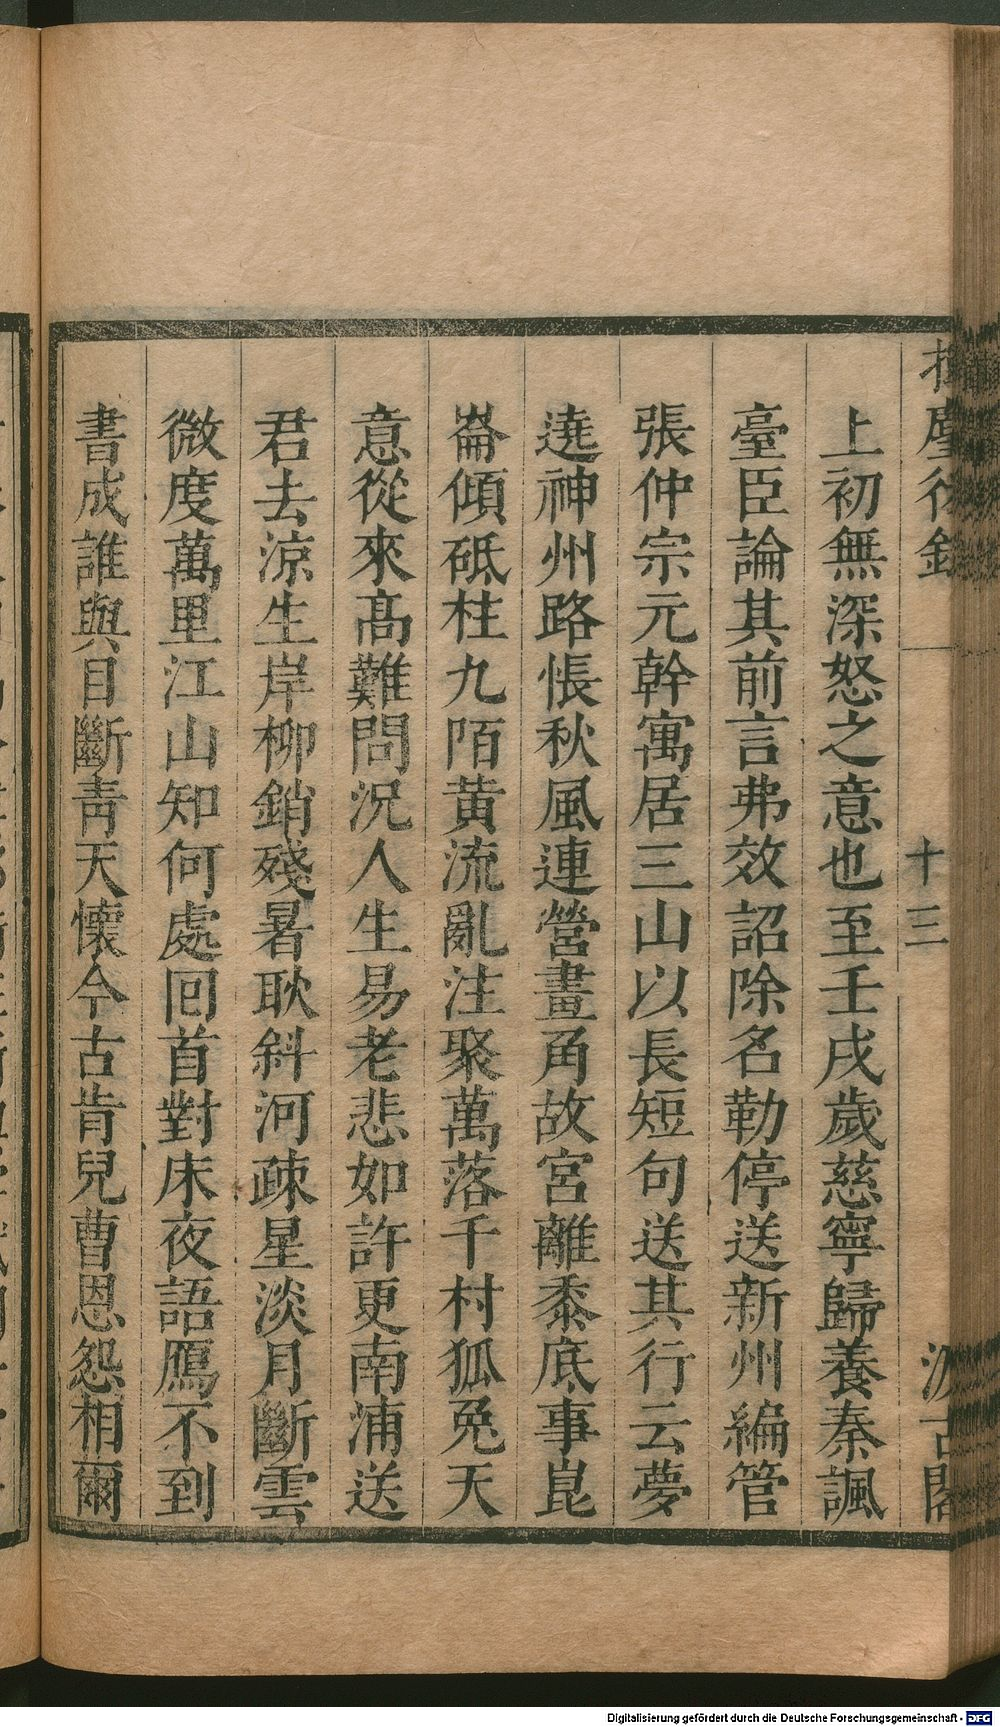 塵後錄
十三
汲古閣
上初無深怒之意也至壬戌歲慈寧歸養秦諷
臺臣論其前言弗效詔除名勒停送新州編管
張仲宗元幹寓居三山以長短句送其行云夢
遶神州路悵秋風連營畫角故宮離黍底事崑
崙傾砥柱九陌黄流亂注聚萬落千村狐兔天
意從來髙難問況人生易老悲如許更南浦送
君去涼生岸柳銷殘暑耿斜河疎星淡月斷雲
微度萬里江山知何處回首對床夜語鴈不到
書成誰與目斷靑天懷今古肯兒曹恩怨相爾
Digitalisierung gefördert durch die Deutsche Forschungsgemeinschaft - DFG